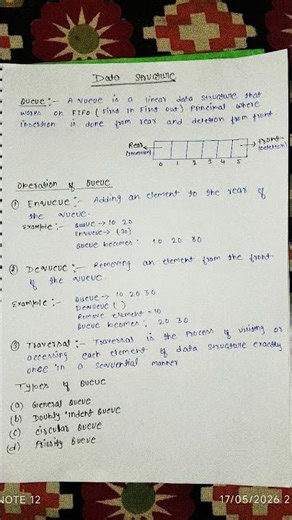 Data Structure
Queue :- A Queue is a linear data structure that
works on FIFO (First In First Out) Principal where
insertion is done from rear and deletion from front.
Rear
Front
(insertion)
(deletion)
0 1 2 3 4 5
Operation of Queue
① Enqueue :- Adding an element to the rear of
the queue.
Example :- Queue → 10 20
Enqueue → (30)
Queue becomes : 10 20 30
② Dequeue :- Removing an element from the front
of the queue.
Example :- Queue → 10 20 30
Dequeue ( )
Remove element = 10
Queue becomes : 20 30
③ Traversal :- Traversal is the process of visiting or
accessing each element of data structure exactly
once in a sequential manner
Types of Queue
(a) General Queue
(b) Doubly Indent Queue
(c) Circular Queue
(d) Priority Queue
NOTE 12
17/05/2026 2